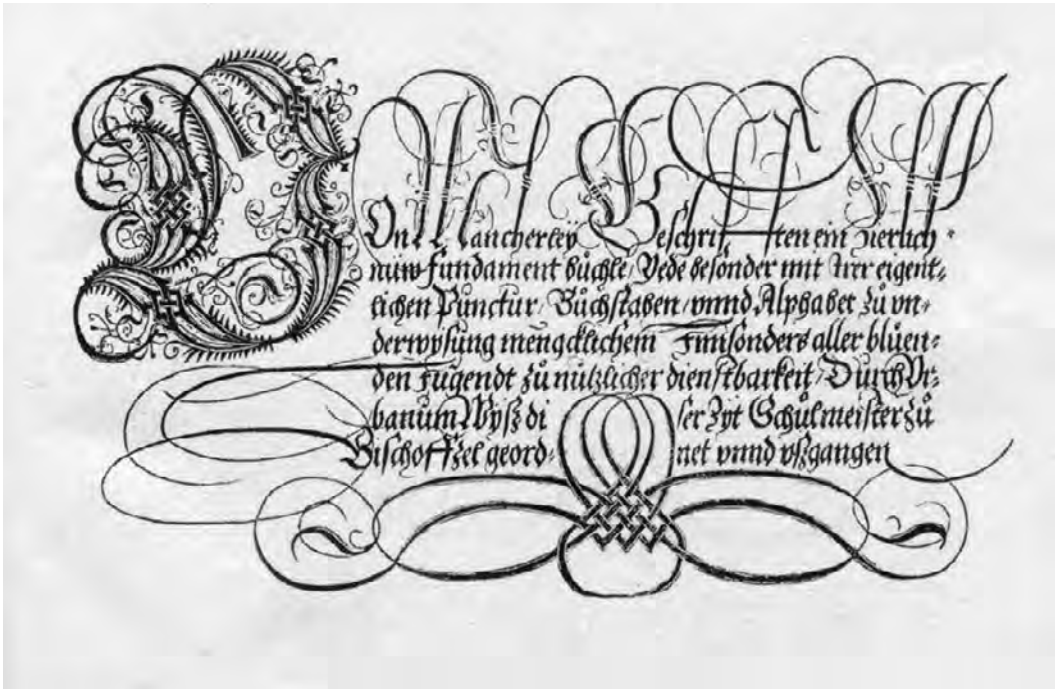 Von Mancherley Geschrifften ein zierlich
nüw fundament büchle / Yede besonder mit irer eigent⸗
lichen Punctur / Bůchstaben / vnnd Alphabet zů vn⸗
derwysung mengcklichem Innsonders aller blüen⸗
den Jugendt zů nützlicher dienstbarkeit / Durch Vr⸗
banum Wyß diser Zyt Schůlmeister zů
Bischoffzel geordnet vnnd vßgangen